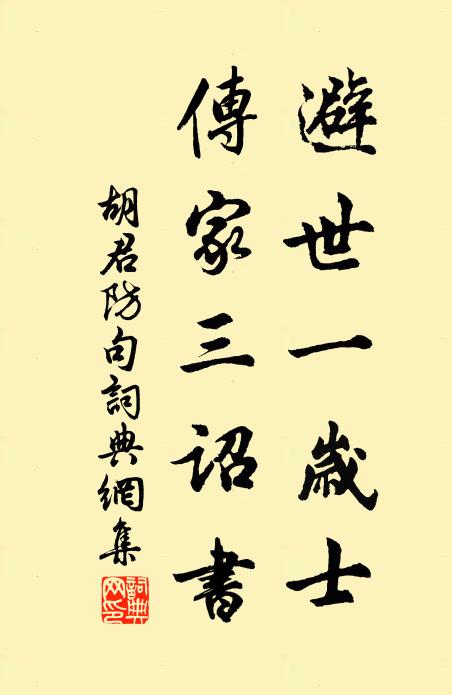 避世一歲士
傳家三詔書
胡君防句詞典網集
詞典
网印